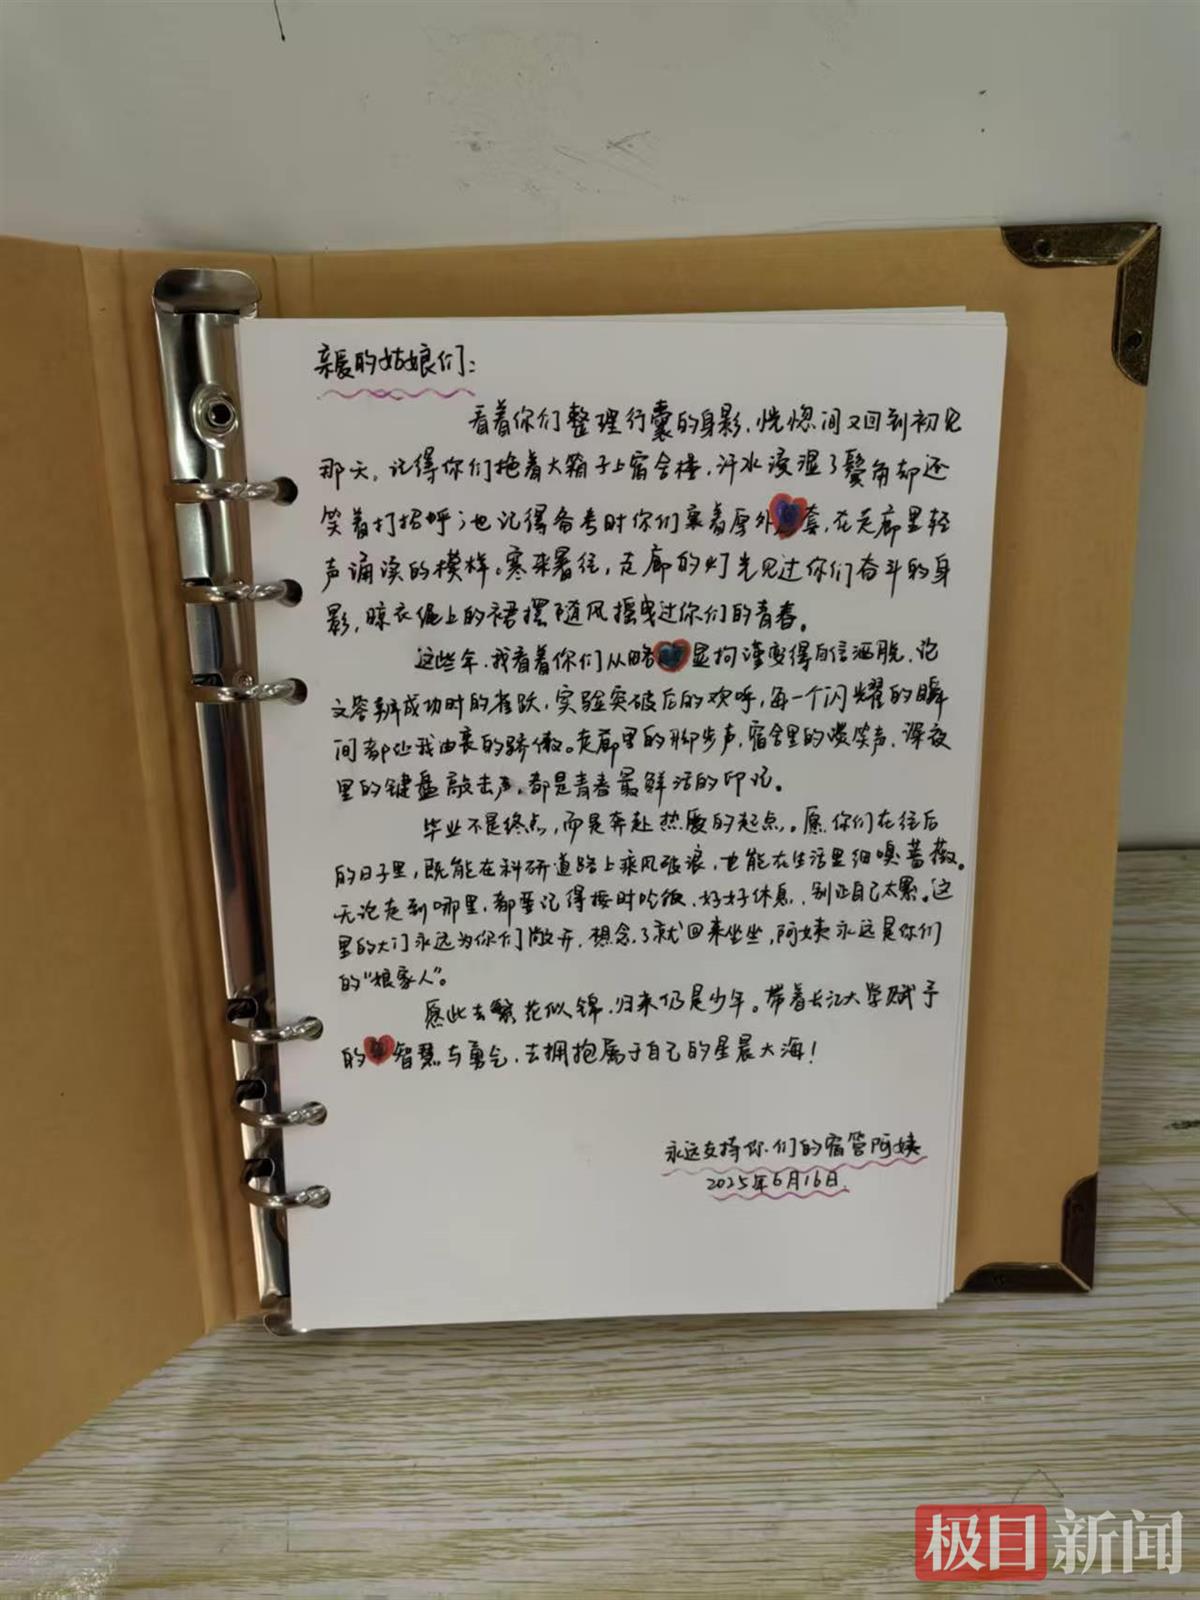 亲爱的姑娘们：
看着你们整理行囊的身影，恍惚间又回到初见
那天。记得你们拖着大箱子上宿舍楼，汗水浸湿了鬓角却还
笑着打招呼；也记得备考时你们裹着厚外套，在走廊里轻
声诵读的模样。寒来暑往，走廊的灯光见过你们奋斗的身
影，晾衣绳上的裙摆随风摇曳过你们的青春。
这些年，我看着你们从略显拘谨变得自信洒脱，论
文答辩成功时的雀跃，实验突破后的欢呼，每一个闪耀的瞬
间都让我由衷的骄傲。走廊里的脚步声，宿舍里的嬉笑声，深夜
里的键盘敲击声，都是青春最鲜活的印记。
毕业不是终点，而是奔赴热爱的起点。愿你们在往后
的日子里，既能在科研道路上乘风破浪，也能在生活里细嗅蔷薇。
无论走到哪里，都要记得按时吃饭，好好休息，别让自己太累。这
里的大门永远为你们敞开，想念了就回来坐坐，阿姨永远是你们
的“娘家人”。
愿此去繁花似锦，归来仍是少年。带着长江大学赋予
的智慧与勇气，去拥抱属于自己的星辰大海！
永远支持你们的宿管阿姨
2025年6月16日
极目新闻